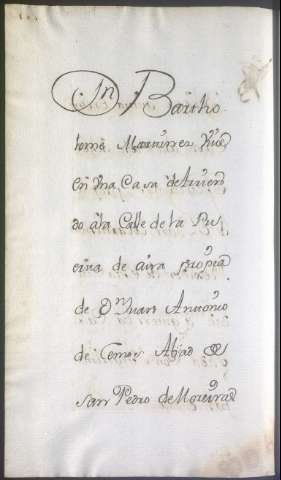 Dn Bartho
lome Martinez Vive
en Una Casa detrien
do ala Calle de la Pis
cina de aira propia
de Dn Juan Antonio
de Temes Abad de
San Pedro de Moreiras